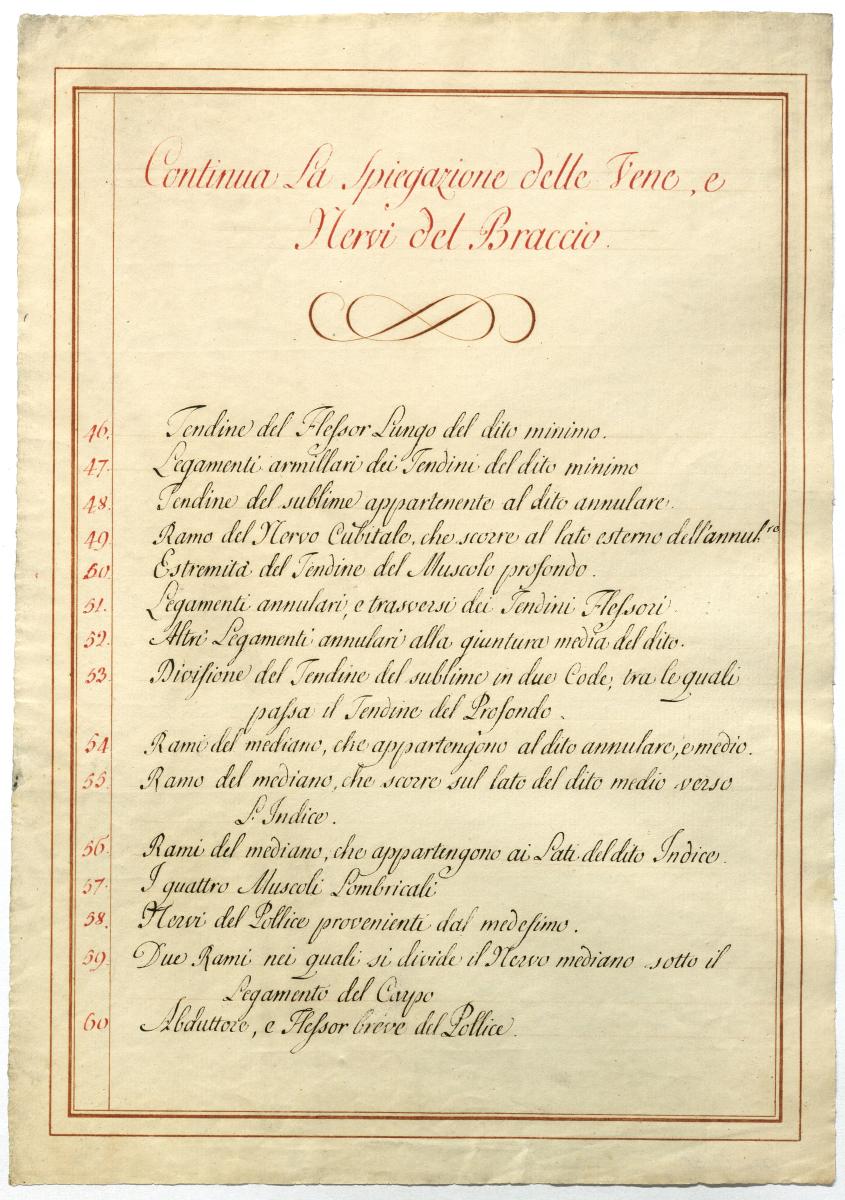 Continua La Spiegazione delle Vene, e
Nervi del Braccio.
46. Tendine del Flessor Lungo del dito minimo.
47. Legamenti armillari dei Tendini del dito minimo
48. Tendine del sublime appartenente al dito annulare.
49. Ramo del Nervo Cubitale, che scorre al lato esterno dell'annul.re
50. Estremità del Tendine del Muscolo profondo.
51. Legamenti annulari, e trasversi dei Tendini Flessori.
52. Altri Legamenti annulari alla giuntura media del dito.
53. Divisione del Tendine del sublime in due Code, tra le quali
passa il Tendine del Profondo.
54 Rami del mediano, che appartengono al dito annulare, e medio.
55. Ramo del mediano, che scorre sul lato del dito medio verso
L'Indice.
56. Rami del mediano, che appartengono ai Lati del dito Indice.
57. I quattro Muscoli Lombricali
58. Nervi del Pollice provenienti dal medesimo.
59. Due Rami nei quali si divide il Nervo mediano sotto il
Legamento del Carpo
60 Abduttore, e Flessor breve del Pollice.